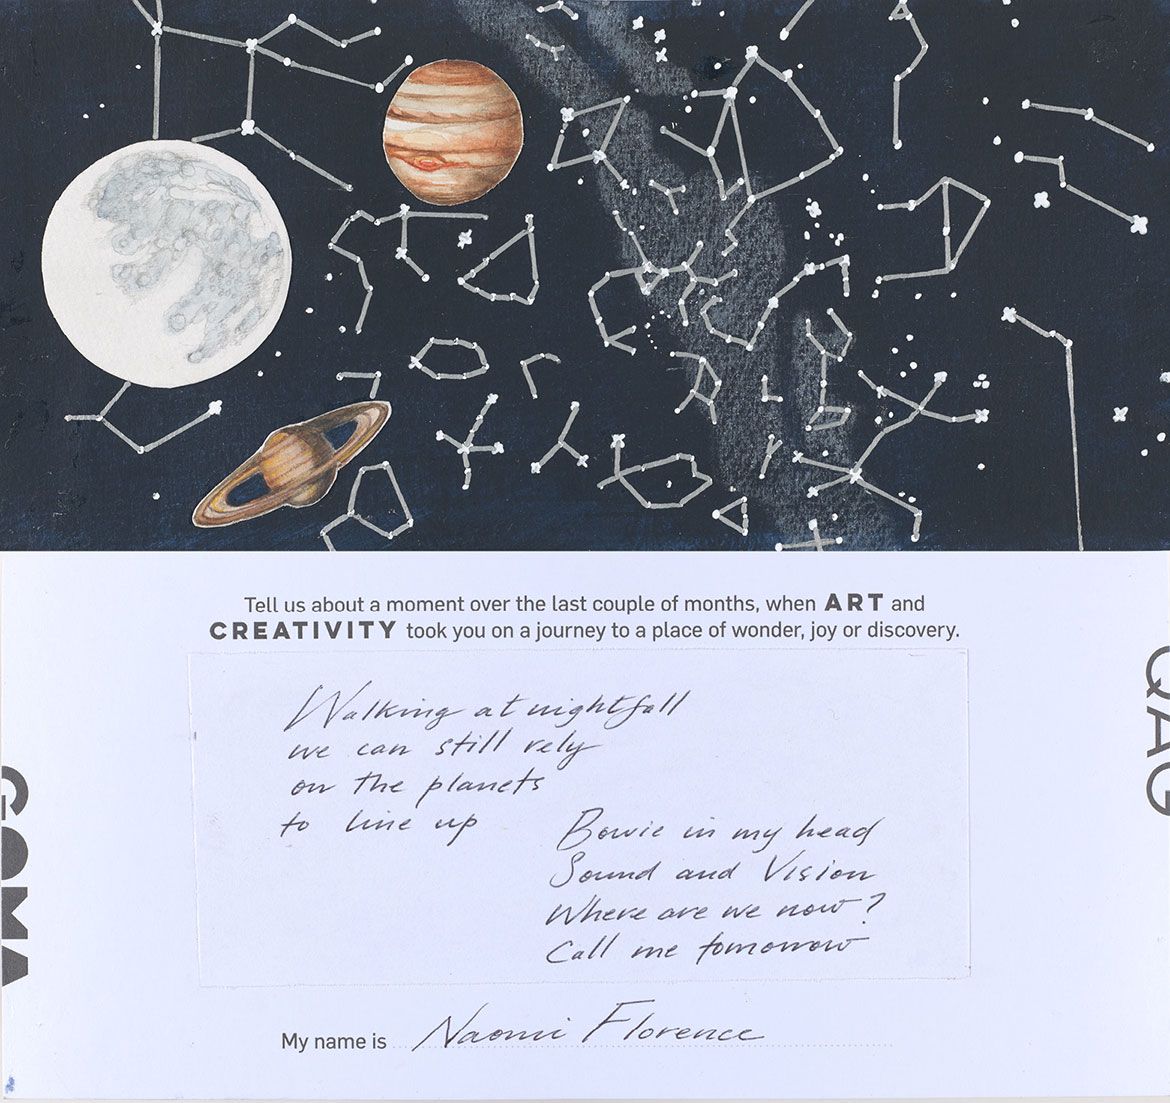 Tell us about a moment over the last couple of months, when ART and
CREATIVITY took you on a journey to a place of wonder, joy or discovery.
Walking at nightfall
we can still rely
on the planets
to line up
Bowie in my head
Sound and Vision
Where are we now?
Call me tomorrow
My name is Naomi Florence
GOMA
QAG